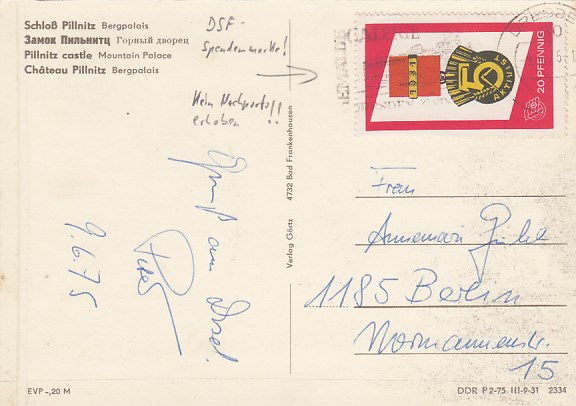 Schloß Pillnitz Bergpalais
Замок Пильнитц Горный дворец
Pillnitz castle Mountain Palace
Château Pillnitz Bergpalais
DSF-
Spendenmarke!
Kein Nachporto
erhoben !!
Gruß an
9.6.75
Verlag Görtz 4732 Bad Frankenhausen
20 PFENNIG
AKTIVIST
5
Frau
Annemari
1185 Berlin
Normannenstr.
15
EVP -,20 M
DDR P 2-75 III-9-31 2334